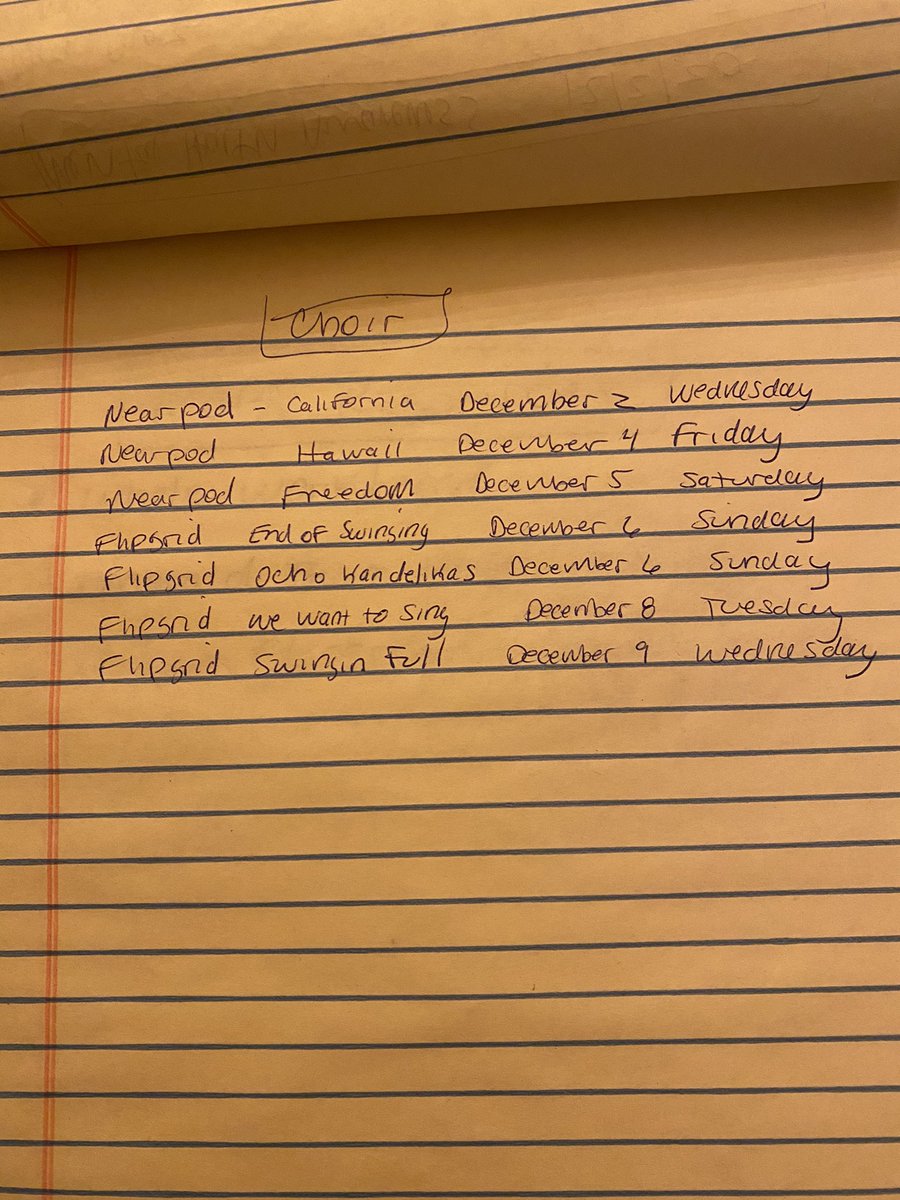 Choir
Nearpod - California December 2 Wednesday
Nearpod Hawaii December 4 Friday
Nearpod Freedom December 5 Saturday
Flipgrid End of Swinging December 6 Sinday
Flipgrid Ocho Kandelikas December 6 Sunday
Flipgrid we want to sing December 8 Tuesday
Flipgrid Swingin Full December 9 Wednesday